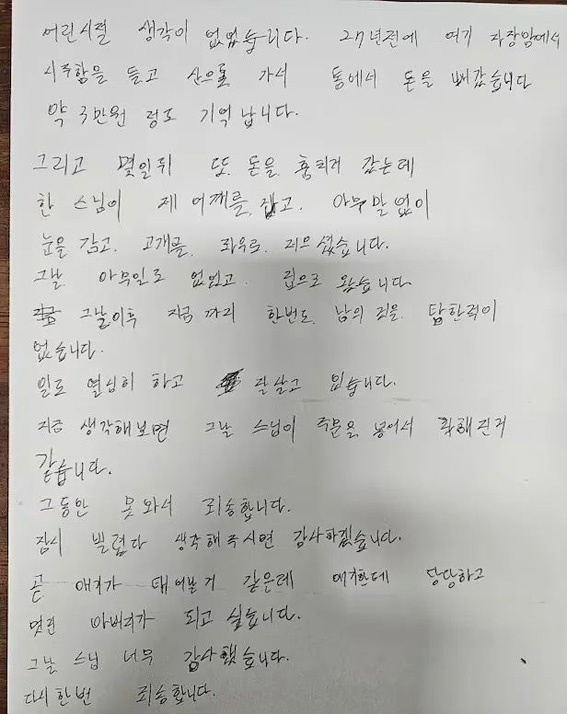 어린시절 생각이 없었습니다. 27년전에 여기 자장암에서
시주함을 들고 산으로 가서 통에서 돈을 빼갔습니다
약 3만원 정도 기억 납니다.
그리고 몇일뒤 또 돈을 훔치러 갔는데
한 스님이 제 어깨를 잡고 아무말 없이
눈을 감고 고개를 좌우로 저으셨습니다.
그날 아무일도 없었고 집으로 왔습니다
그날이후 지금 까지 한번도 남의 것을 탐한적이
없습니다.
일도 열심히 하고 잘살고 있습니다.
지금 생각해보면 그날 스님이 주문을 넣어서 착해진거
같습니다.
그동안 못와서 죄송합니다.
잠시 빌렸다 생각해주시면 감사하겠습니다.
곧 애기가 태어날거 같은데 애기한테 당당하고
멋진 아버지가 되고 싶습니다.
그날 스님 너무 감사했습니다.
다시한번 죄송합니다.